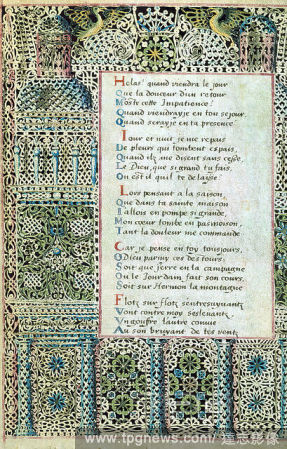 Helas! quand viendra le jour
Que la douceur d'un retour
Moste cette Impatience!
Quand viendrayje en ton sejour
Quand serayje en ta presence
Iour et nuit je me repais
De pleurs qui tombent espais,
Quand ilz me disent sans cesse,
Le Dieu, que si grand tu fais,
Ou est il quil te delaisse
Lors pensant a la saison
Que dans ta sainte maison
Iallois en pompe si grande
Mon coeur tombe en pasmoison,
Tant la douleur me commande
Car je pense en toy tousjours,
O Dieu parmy ces destours
Soit que j'erre en la campagne
Ou le Jourdam fait son cours
Soit sur Hermon la montagne
Flotz sur flotz sentresuyuantz
Vont contre moy seslevantz
Vn goufre lautre convie
Au son bruyant de tes ventz
www.tpgnews.com/ 達志影像